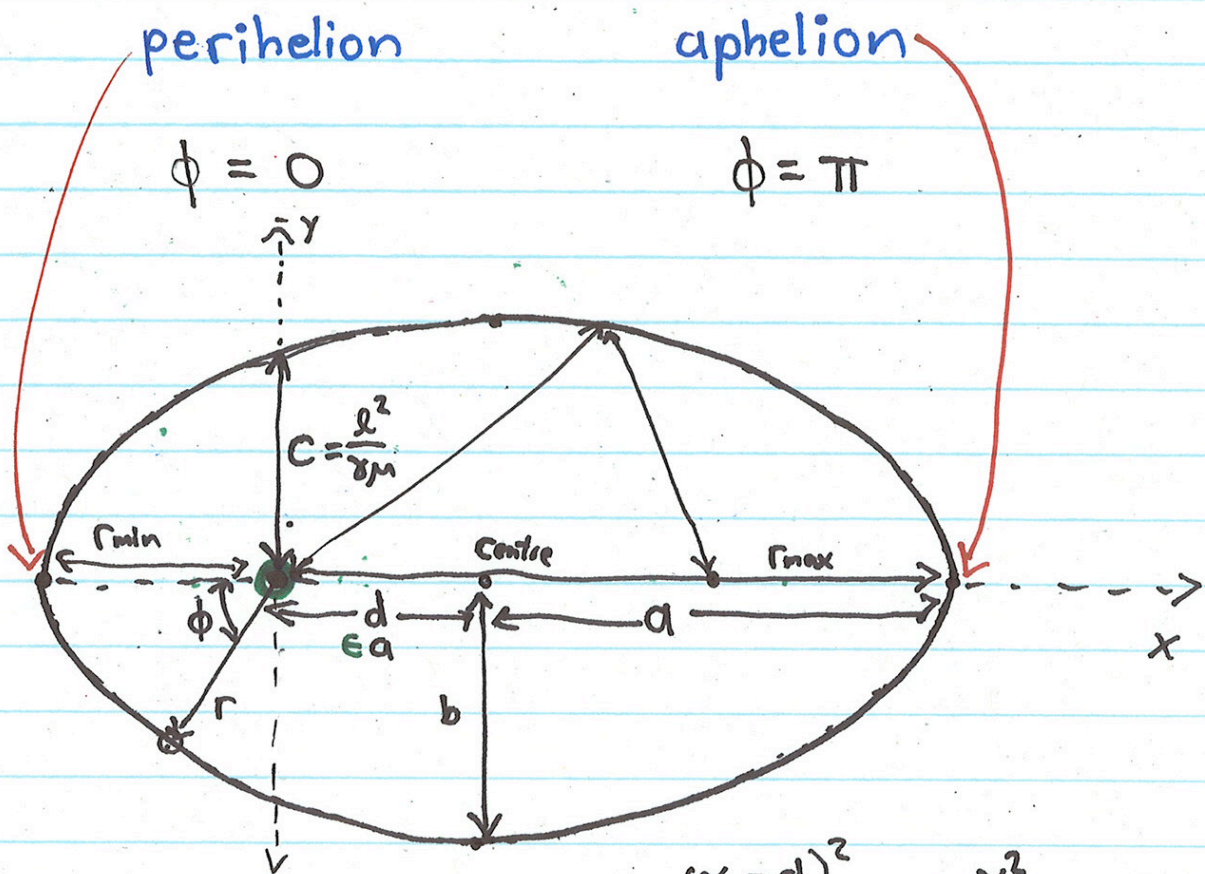 perihelion aphelion
ϕ = 0 ϕ = π
y
C = ℓ²/γμ
rmin centre rmax
ϕ d a
ϵa x
r b
(x - d)² y²